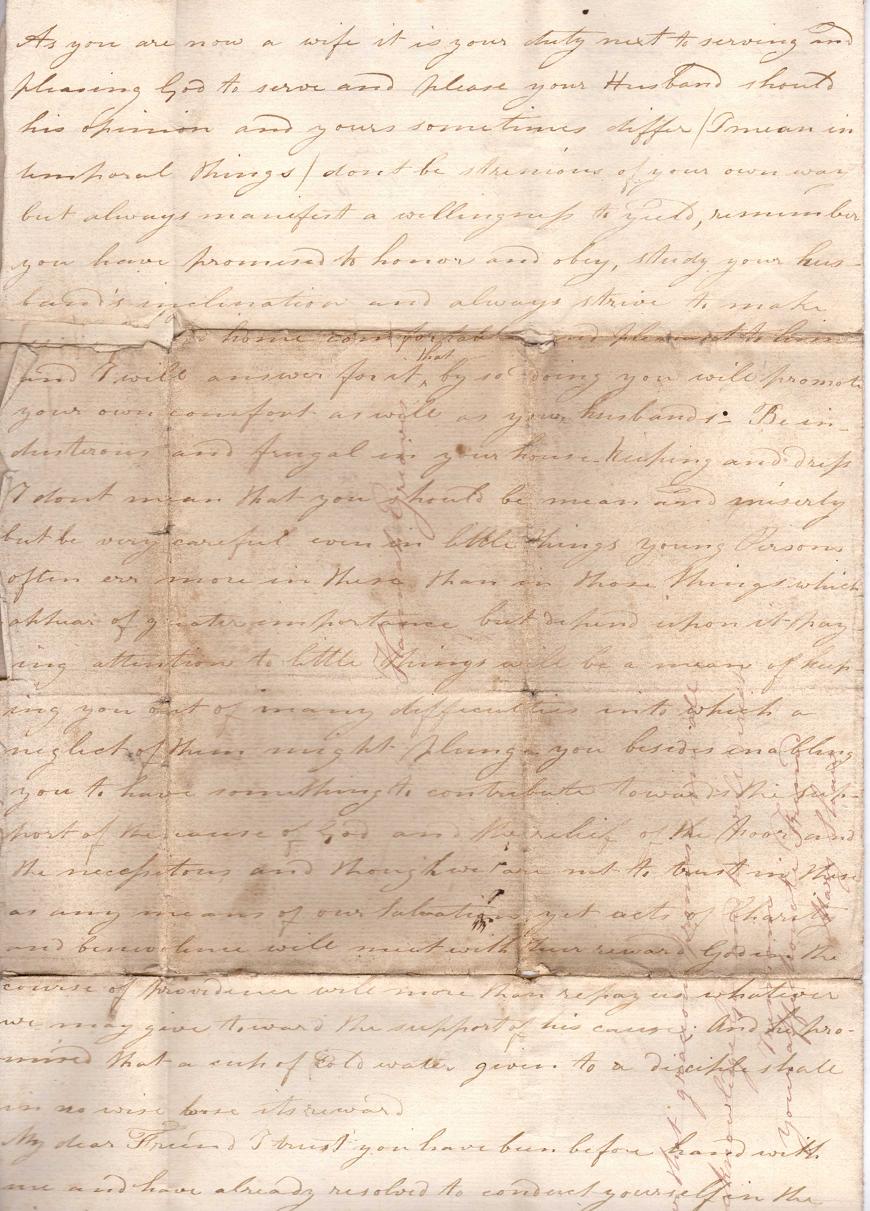 As you are now a wife it is your duty next to serving and
pleasing God to serve and please your Husband should
his opinion and yours sometimes differ (I mean in
temporal things) dont be strenious of your own way
but always manifest a willingness to yield, remember
you have promised to honor and obey, study your hus-
band's inclination and always strive to make
home comfortable and pleasant to him
and I will answer for it, that by so doing you will promote
your own comfort as well as your husbands - Be in-
dusterous and frugal in your house-keeping and dress
I dont mean that you should be mean and miserly
but be very careful even in little things young Persons
often err more in these than in those things which
appear of greater importance but depend upon it pay-
ing attention to little things will be a mean of keep-
ing you out of many difficulties into which a
neglect of them might plunge you besides enabling
you to have something to contribute towards the sup-
port of the cause of God and the relief of the poor and
the necessitous and though we are not to trust in these
as any means of our Salvation, yet acts of Charity
and benevolence will meet with their reward God in the
course of Providence will more than repay us whatever
we may give toward the support of his cause. And he pro-
mised that a cup of Cold water given to a disciple shall
in no wise lose its reward
My dear Friend I trust you have been before hand with
me and have already resolved to conduct yourself in the
Hannah
that gracious
acknowledge
Your Friend
Mary